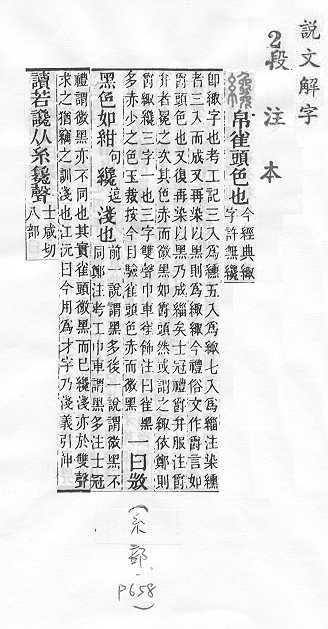 説文解字
2段注本
帛雀頭色也今經典緅字許無纔
即緅字也考工記三入爲纁五入爲緅七入爲緇注染纁
者三入而成又再染以黑則爲緅緅今禮俗文作爵言如
爵頭色也又復再染以黑乃成緇矣士冠禮爵弁服注爵
弁者冕之次其色赤而微黑如爵頭然或謂之緅依鄭則
爵緅纔三字一也三字雙聲巾車雀飾注曰雀黑
多赤少之色玉裁按今目驗雀頭色赤而微黑一曰𢼸
黑色如紺句纔逗淺也前一說謂黑多後一說謂微黑不
同鄭注考工巾車謂黑多注士冠
禮謂微黑亦不同也其實雀頭微黑而已纔淺亦於雙聲
求之猶竊之訓淺也江沅曰今用爲才字乃淺義引伸
讀若讒从糸毚聲士咸切八部
(糸部.P658)